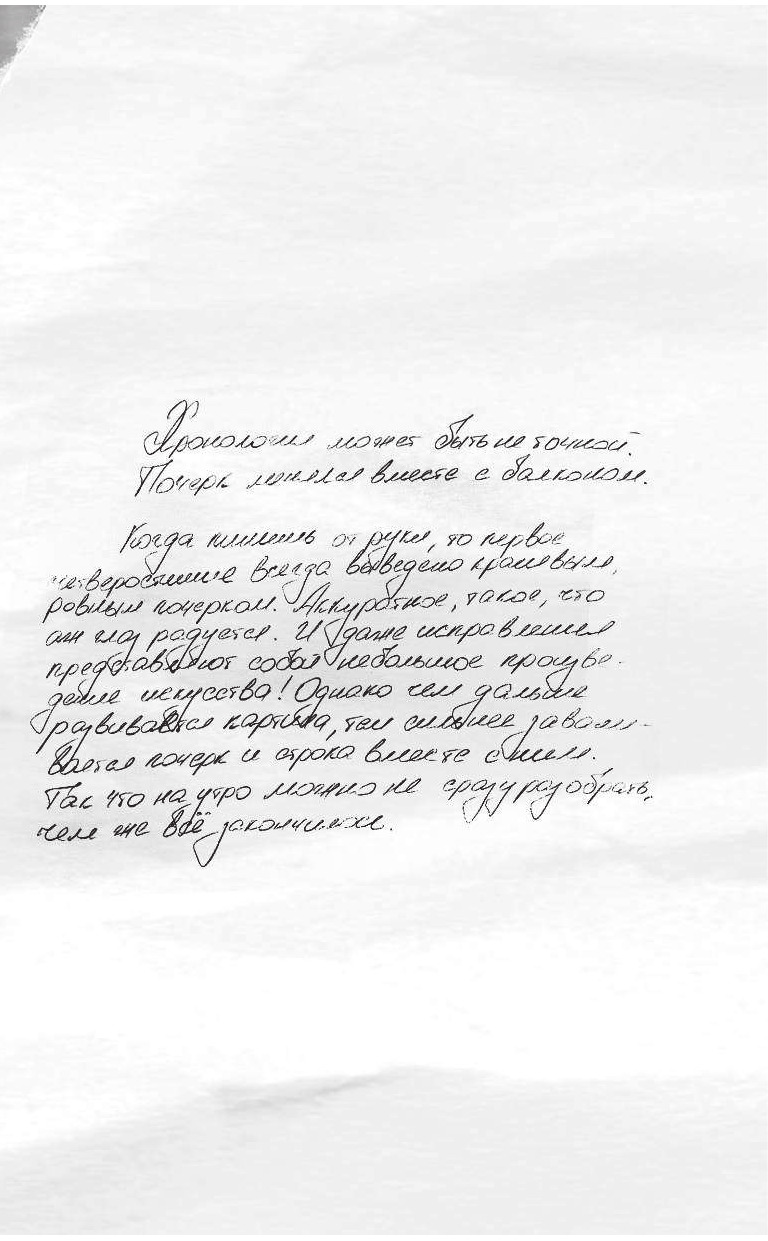 Хронология может быть не точной.
Почерк менялся вместе с балконом.
Когда пишешь от руки, то первое
четверостишие всегда выведено красивым,
ровным почерком. Аккуратное, такое, что
аж глаз радуется. И даже исправления
представляют собой небольшое произве-
дение искусства! Однако чем дальше
развивается картина, тем сильнее завали-
вается почерк и строка вместе с ним.
Так что на утро можно не сразу разобрать,
чем же всё закончилось.